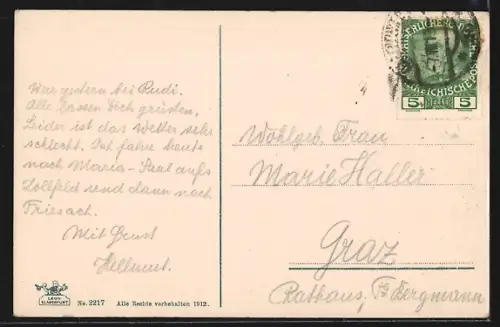 War gestern bei Rudi.
Alle lassen Dich grüßen,
Leider ist das Wetter sehr
schlecht. Ich fahre heute
nach Maria-Saal aufs
Zollfeld und dann nach
Friesach.
Mit Gruß
Hellmut.
Wohlgeb. Frau
Marie Haller
Graz
Rathaus, Bergmann
KAISERLICHE KÖNIGLICHE
ÖSTERREICHISCHE POST
5 HELLER 5
LEON
KLAGENFURT
No. 2217 Alle Rechte vorbehalten 1912.